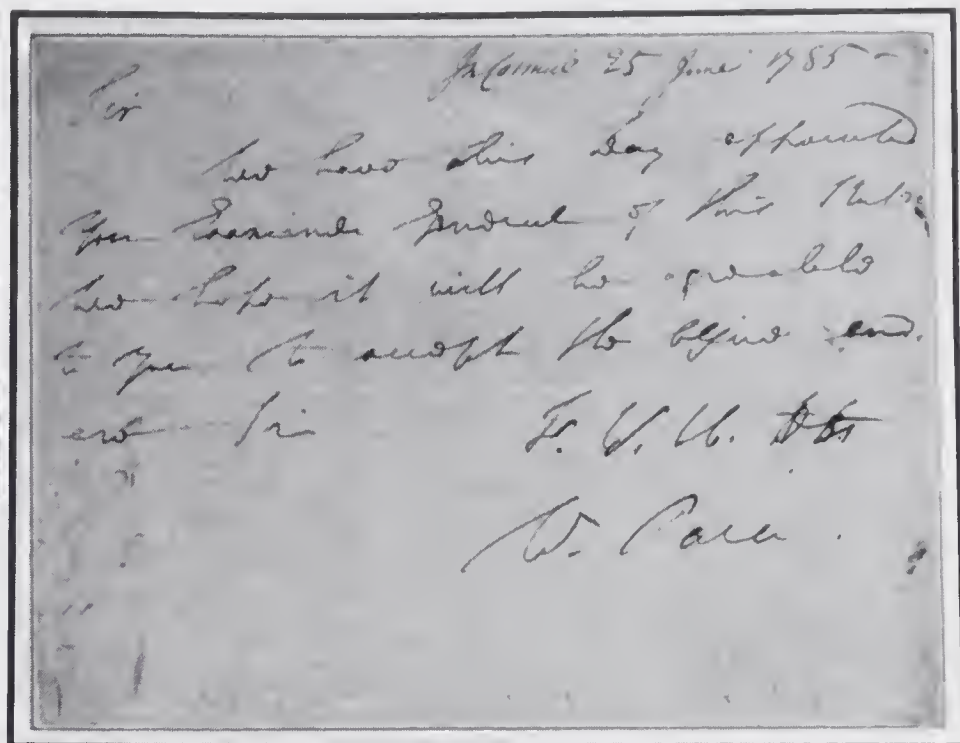 In Council 25 June 1785 -
Sir
We have this day appointed
you Examiner General of this State
we hope it will be agreeable
to you to accept the office and
are Sir
W. Paca.